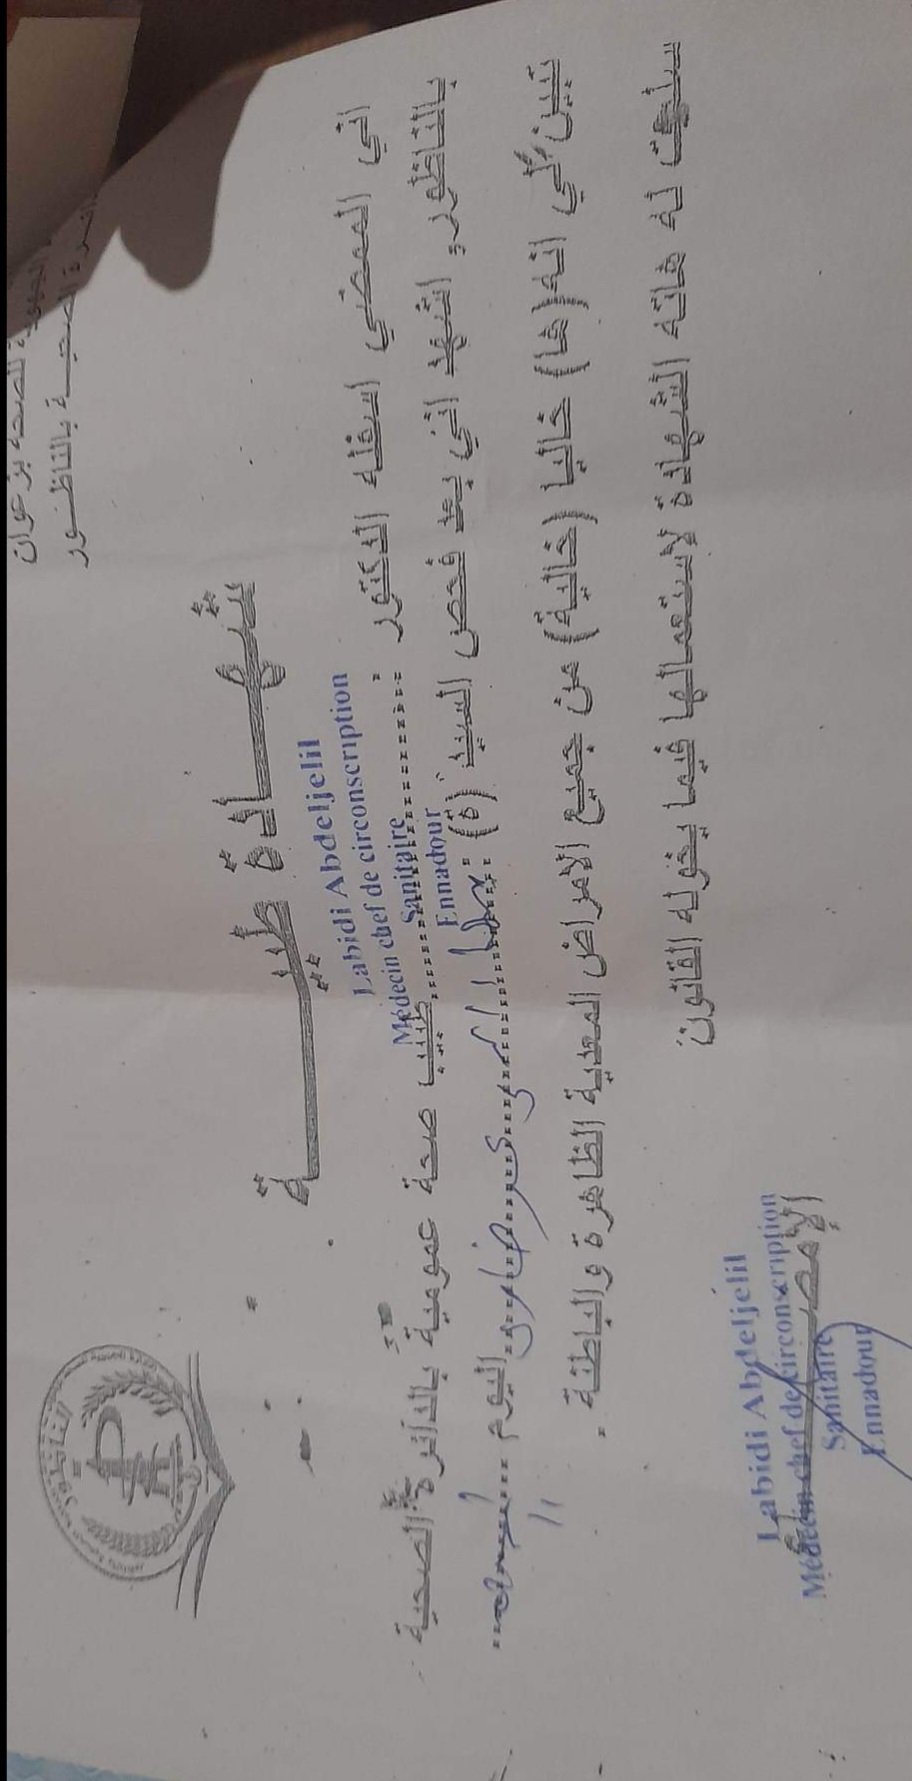 للصحة بزغوان
الصحية بالناظور
الناظور
شهادة طبية
Labidi Abdeljelil
Médecin chef de circonscription
Sanitaire
Ennadour
اني الممضي اسفله الدكتور
طبيب صحة عمومية بالدائرة الصحية
بالناظور، اشهد اني بعد فحص السيد (ة)
اليوم
تبين لي انه (ها) خاليا (خالية) من جميع الأمراض المعدية الظاهرة والباطنة.
سلمت له هاته الشهادة لإستعمالها فيما يخوله القانون
الإمضاء
Labidi Abdeljelil
Médecin chef de circonscription
Sanitaire
Ennadour